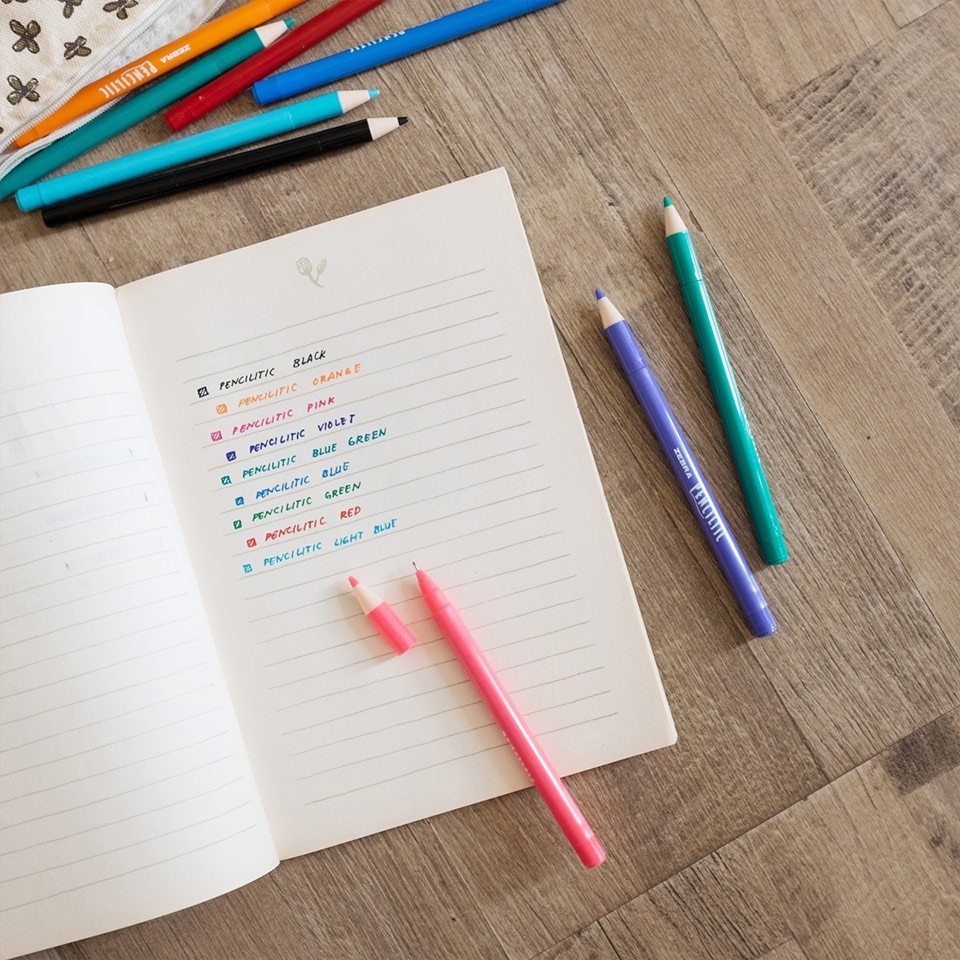 ZEBRA PENCILITIC
PENCILITIC
PENCILITIC BLACK
PENCILITIC ORANGE
PENCILITIC PINK
PENCILITIC VIOLET
PENCILITIC BLUE GREEN
PENCILITIC BLUE
PENCILITIC GREEN
PENCILITIC RED
PENCILITIC LIGHT BLUE
ZEBRA PENCILITIC